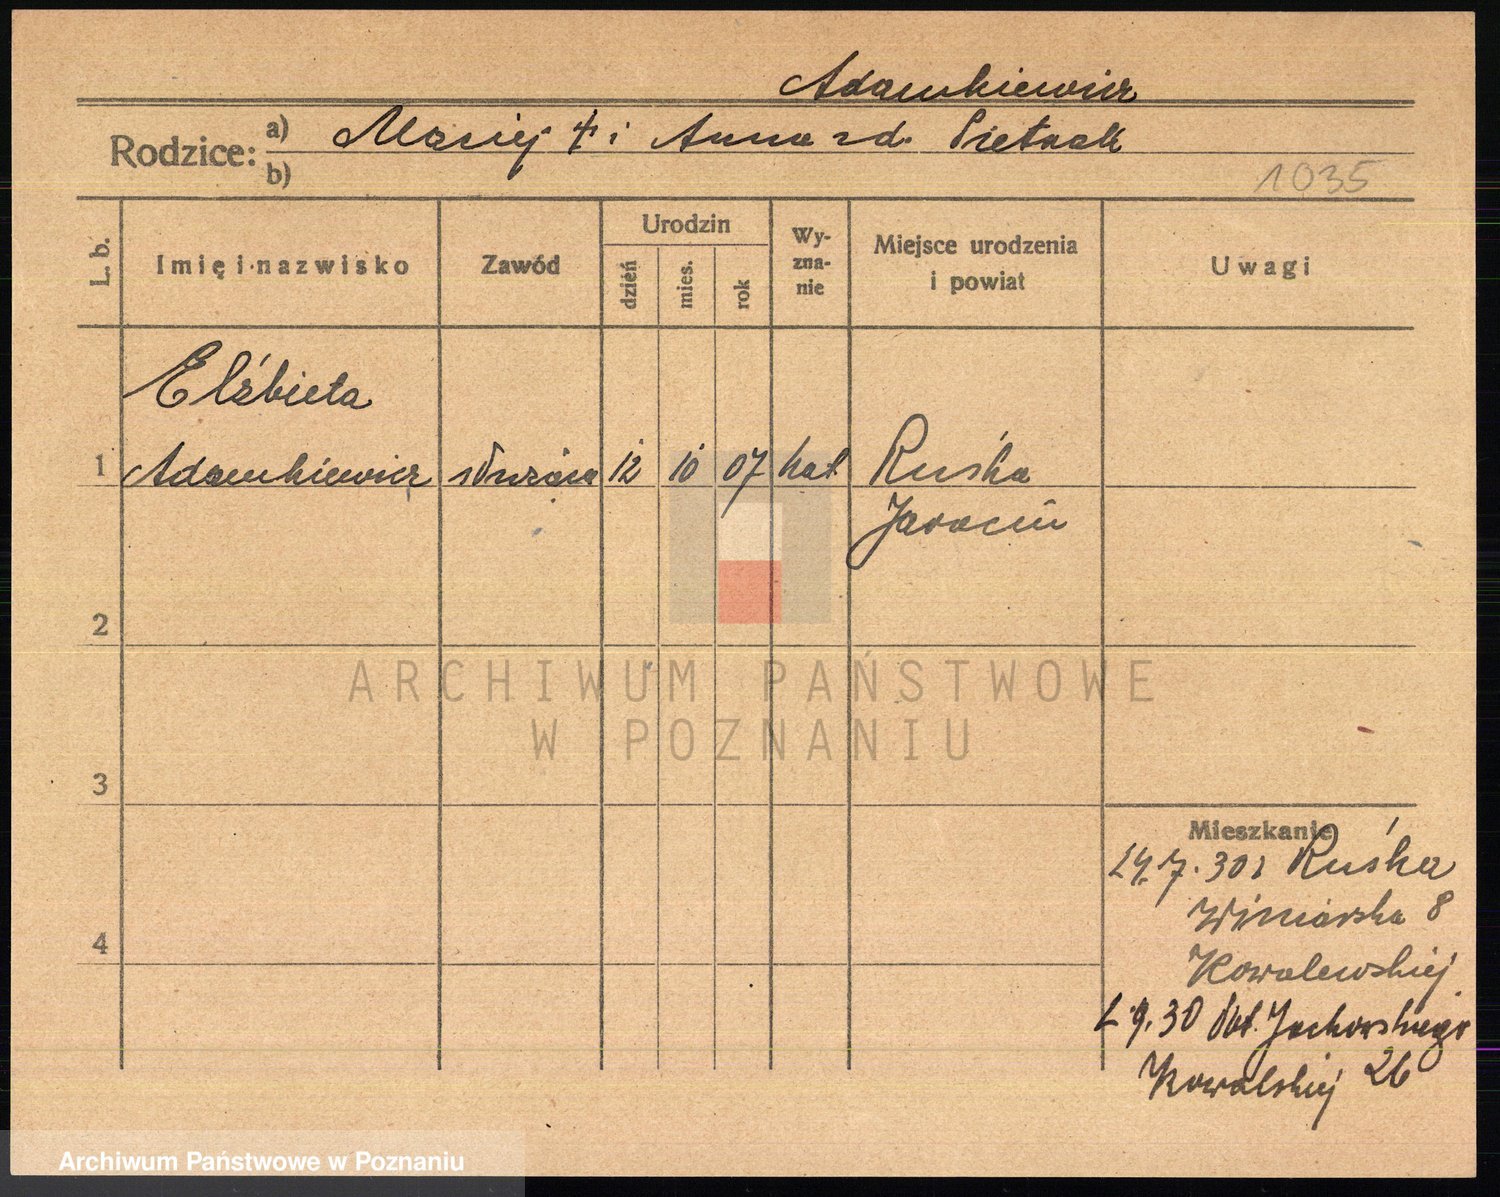 Adamkiewicz
Rodzice: a) Maciej † i Anna zd. Pietrzak
b)
1035
L. b.
Imię i nazwisko
Zawód
Urodzin
dzień
mies.
rok
Wy-
zna-
nie
Miejsce urodzenia
i powiat
Uwagi
Elżbieta
1 Adamkiewicz służąca 12 10 07 kat Ruśka
Jarocin
2
3
4
Mieszkanie
7.30 z Ruśka
Winiarska 8
Kowalewskiej
9.30
Kowalskiej 26
ARCHIWUM PAŃSTWOWE
W POZNANIU
Archiwum Państwowe w Poznaniu